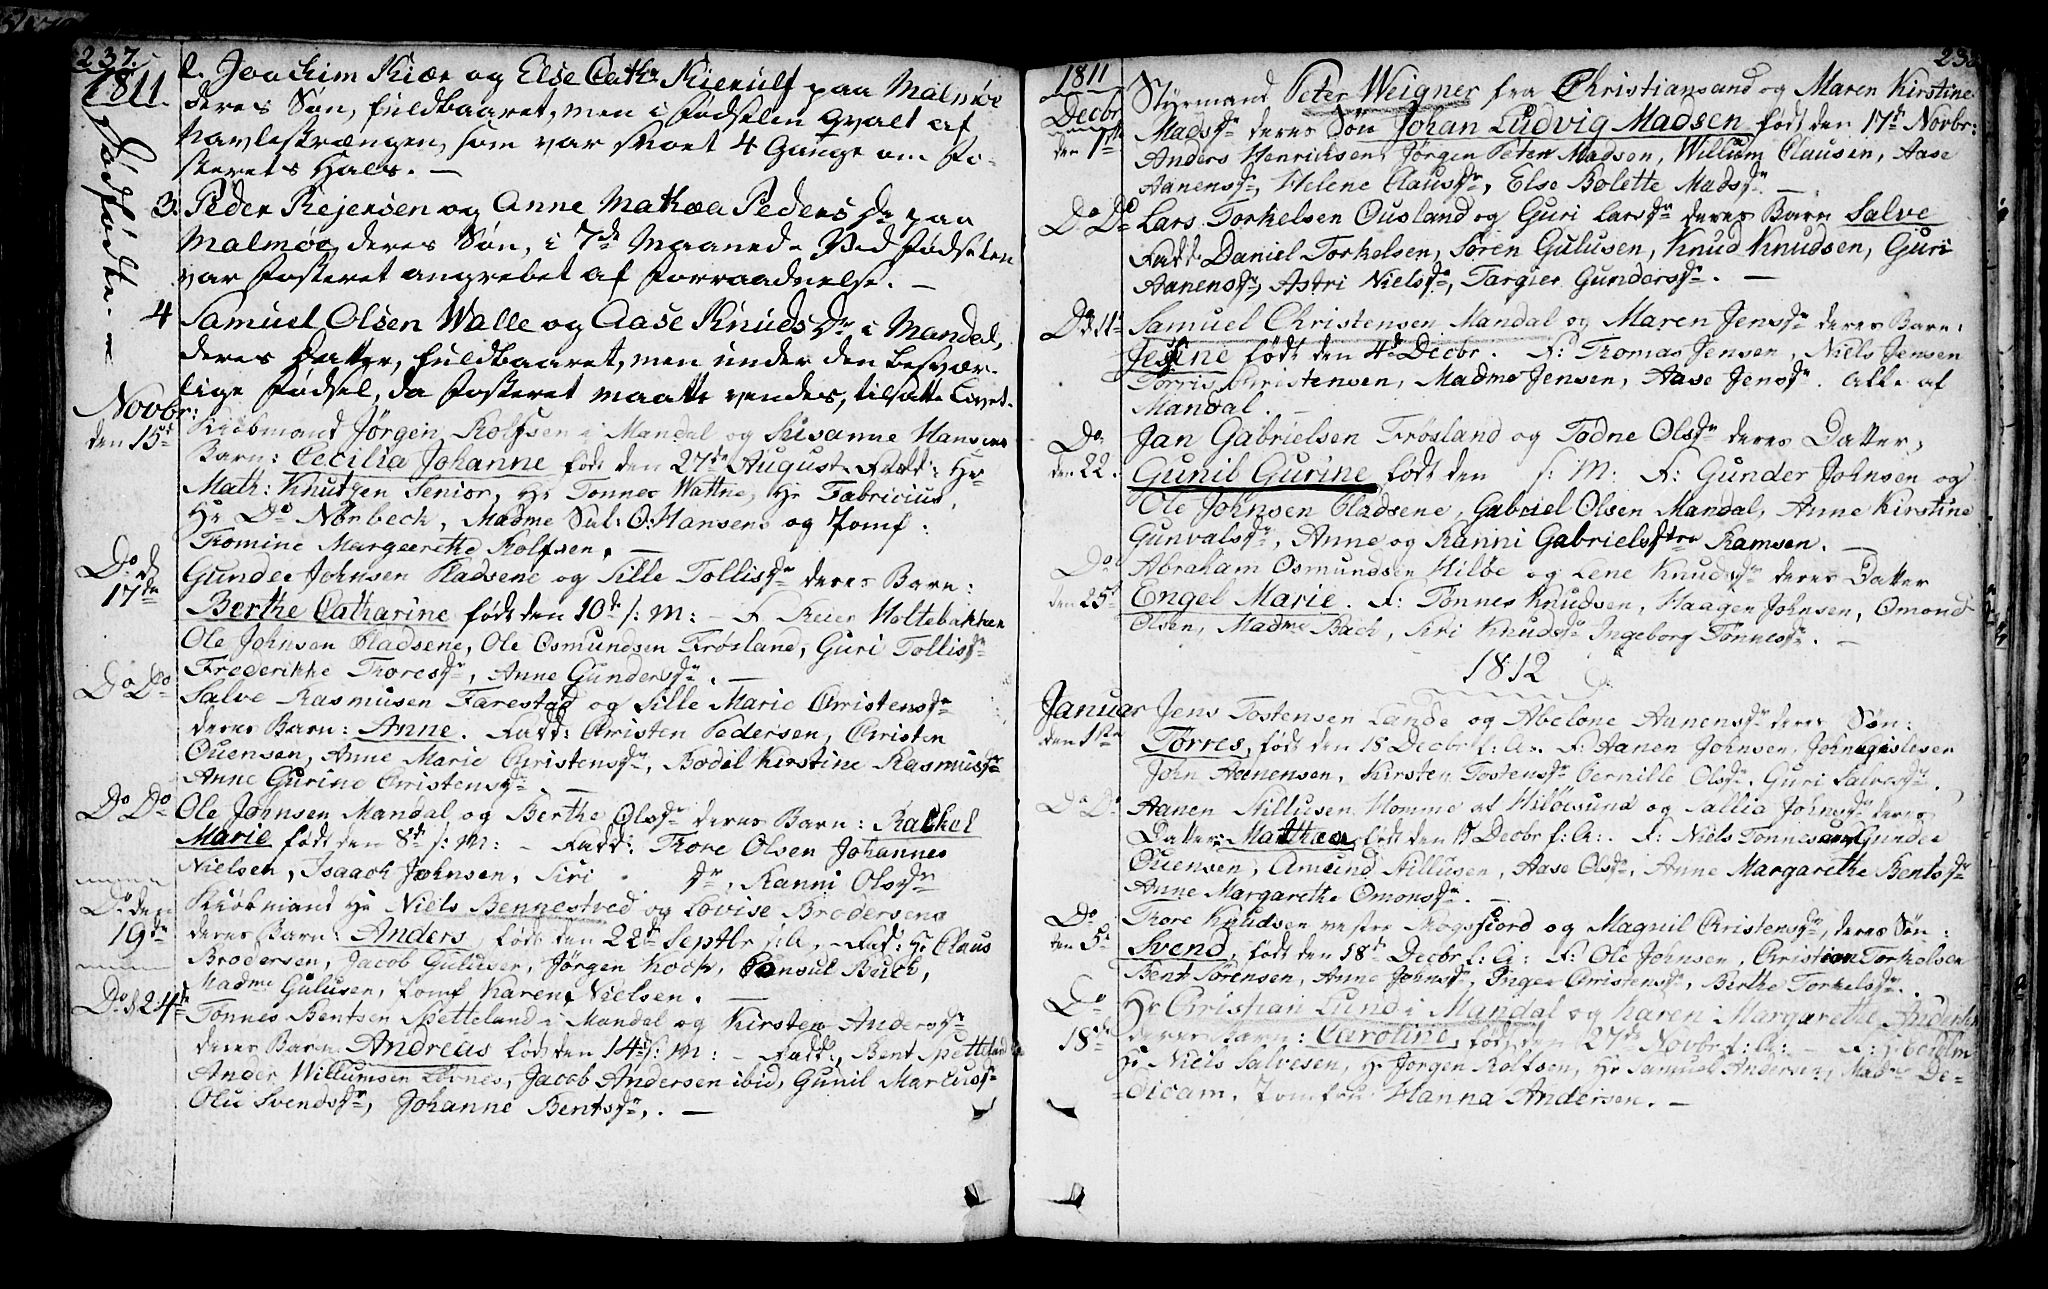 237.
1811.
Dødfødte.
2. Joachim Kiær og Else Cath: Kierulf paa Malmøe
deres Søn, fuldbaaret, men i Fødselen qvalt af
Navlestrængen, som var snoet 4 Gange om Fo-
sterets Hals. —
3. Peder Rejersen og Anne Mathea Pedersdr paa
Malmøe, deres Søn, i 7de Maaned. Ved Fødselen
var Fosteret angrebet af Forraadnelse. —
4 Samuel Olsen Walle og Aase Knudsdr i Mandal,
deres Datter, fuldbaaret, men under den besvær-
lige Fødsel, da Fosteret maatte vendes, tilsatte Livet.
Novbr:
den 15d Kiøbmand Jørgen Rolfsen i Mandal og Susanne Hansens
Barn: Cecilia Johanne født den 27de August. Fadd: Hr
Math: Knutzen Senior, Hr Tønnes Wattne, Hr Fabricius,
Hr Do Nørbeck, Madme Sal: O: Hansens og Jomf:
Tromine Margrethe Rolfsen. —
Do d 17de Gunder Johnsen Pladsene og Sille Tollisdr deres Barn:
Berthe Catharine født den 10de s: M: — F. Reier Holtebakken
Ole Johnsen Pladsene, Ole Osmundsen Frøsland, Guri Tollisdr
Frederikke Thoresdr, Anne Gundersdr. —
Do Do Salve Rasmusen Farestad og Sille Marie Christensdr
deres Barn: Anne. Fadd: Christen Pedersen, Christen
Ouensen, Anne Marie Christensdr, Bodil Kirstine Rasmusdr
Anne Gurine Christensdr. —
Do Do Ole Johnsen Mandal og Berthe Olsdr deres Barn: Rachel
Marie født den 8de s: M: — Fadd: Thore Olsen Johannes
Nielsen, Isaach Johnsen, Siri dr, Ranni Olsdr
Do den 19de Kiøbmand Hr Niels Bennestved og Lovise Brodersens
deres Barn: Anders, født den 22de Septbr s: A. — Fad: Hr Claus
Brodersen, Jacob Gulusen, Jørgen Koch, Consul Beuch,
Madme Gulusen, Jomf Karen Nielsen. —
Do d 24de Tønnes Bentsen Spetteland i Mandal og Kirsten Andersdr
deres Barn: Andreas født den 14de s: M: — Fadd: Bent Spetteland
Ander Willumsen Løvnes, Jacob Andersen ibid, Gunil Marcusdr
Olu Svendsdr, Johanne Bentsdr. —
1811
Decbr
den 1te Styrmand Peter Weigner fra Christiansand og Maren Kirstine
Madsdr deres Søn Johan Ludvig Madsen født den 17de Novbr:
Anders Henrichsen, Jørgen Peter Madsen, Willum Clausen, Aase
Aanensdr, Helene Clausdr, Else Bolette Madsdr. —
Do Do Lars Torkelsen Ousland og Guri Larsdr deres Barn Salve
Fadd: Daniel Torkelsen, Søren Gulusen, Knud Knudsen, Guri
Aanensdr, Astri Nielsdr, Targier Gundersdr. —
Do 11te Samuel Christensen Mandal og Maren Jensdr deres Barn:
Jesine født den 4de Decbr. F: Thomas Jensen, Niels Jensen
Torris Christensen, Madme Jensen, Aase Jensdr. Alle af
Mandal. —
Do
den 22. Jan Gabrielsen Frøsland og Todne Olsdr deres Datter,
Gunil Gurine født den s: M: F: Gunder Johnsen og
Ole Johnsen Pladsene, Gabriel Olsen Mandal, Anne Kirstine
Gunvalsdr, Anne og Ranni Gabrielsdtre Ramsen. —
Do
den 25d Abraham Osmundsen Hiløe og Lene Knudsdr deres Datter
Engel Marie. F: Tønnes Knudsen, Haagen Johnsen, Omond
Olsen, Madme Bach, Siri Knudsdr Ingeborg Tønnesdr. —
1812
Januar
den 1ste Jens Tostensen Lande og Abelone Aanensdr deres Søn:
Torres, født den 18 Decbr f: A: F: Aanen Johnsen, John Gislesen
John Aanensen, Kirsten Tostensdr Pernille Olsdr, Guri Salvesdr.
Do Do Aanen Stillusen Homme af Hiløesund og Sallia Johnsdr deres
Datter: Mathea, født den 17 Decbr f: A:. F: Niels Tønnesen Gunder
Ouensen, Amund Stillusen, Aase Olsdr, Anne Margarethe Bentsdr
Anne Margarethe Omonsdr. —
Do
den 5d Thore Knudsen vestre Skogsfiord og Magnil Christensdr, deres Søn:
Svend, født den 18de Decbr f: A: F: Ole Johnsen, Christian Torkelsen
Bent Sørensen, Anne Johnsdr, Inger Christensdr, Berthe Torkelsdr.
Do
18de Hr Christian Lund i Mandal og Karen Margarethe Andersen
deres Barn: Caroline, født den 27de Novbr f: A: — F:
Hr Niels Salvesen, Hr Jørgen Rolfsen, Hr Samuel Andersen, Madme De-
dicam, Jomfru Hanna Andersen. —